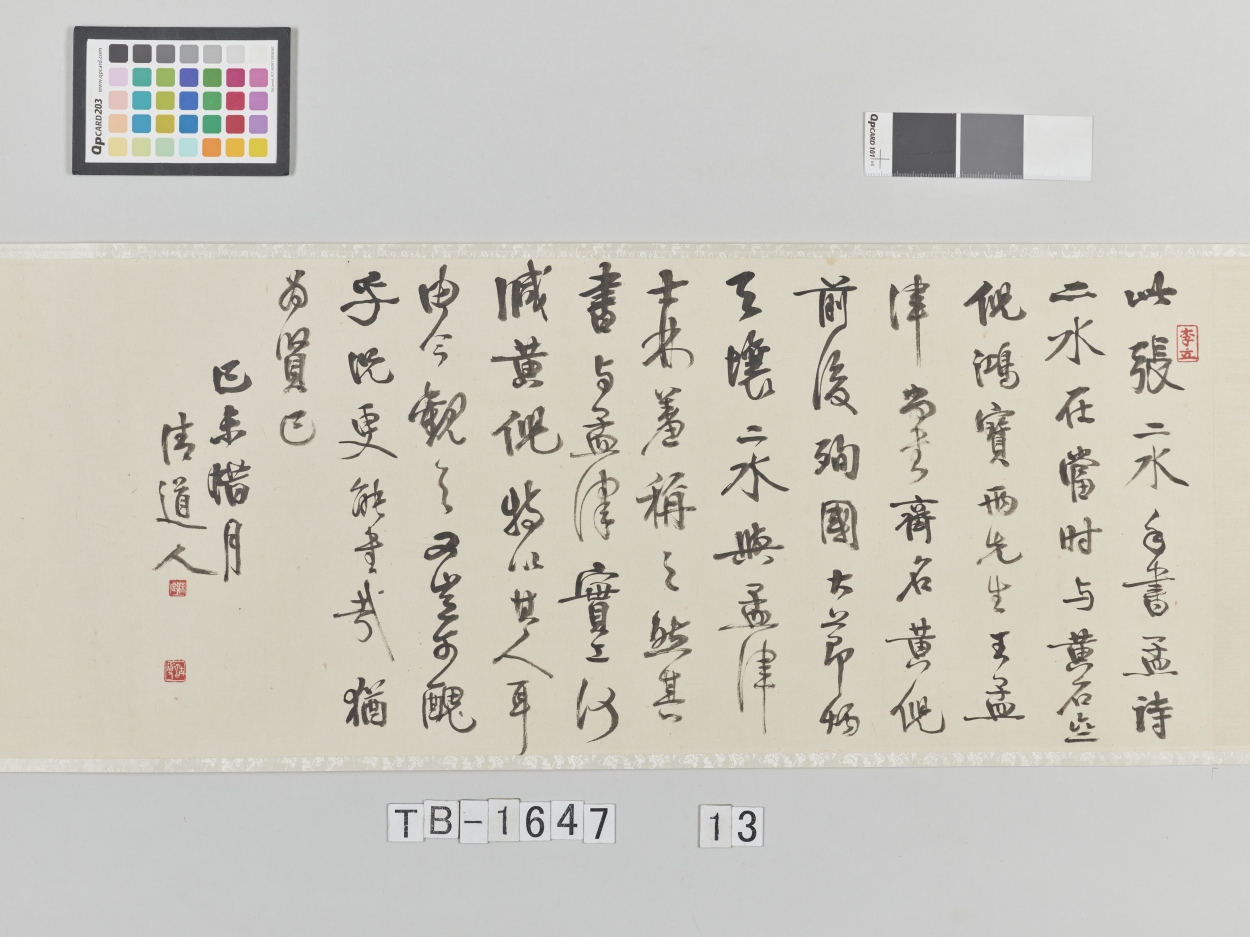 此張二水手書孟詩
二水在當时与黄石亝
倪鴻寶兩先生王孟
津尚書齊名黄倪
前後殉國大節炳
天壤二水與孟津
士林羞稱之然其
書与孟津實何
減黄倪特以其人耳
由今觀之又豈可醜
乎况更能書哉猶
为賢已
己未腊月
清道人
QpCARD 203
www.qpcard.com
QpCARD 101
TB-1647 13